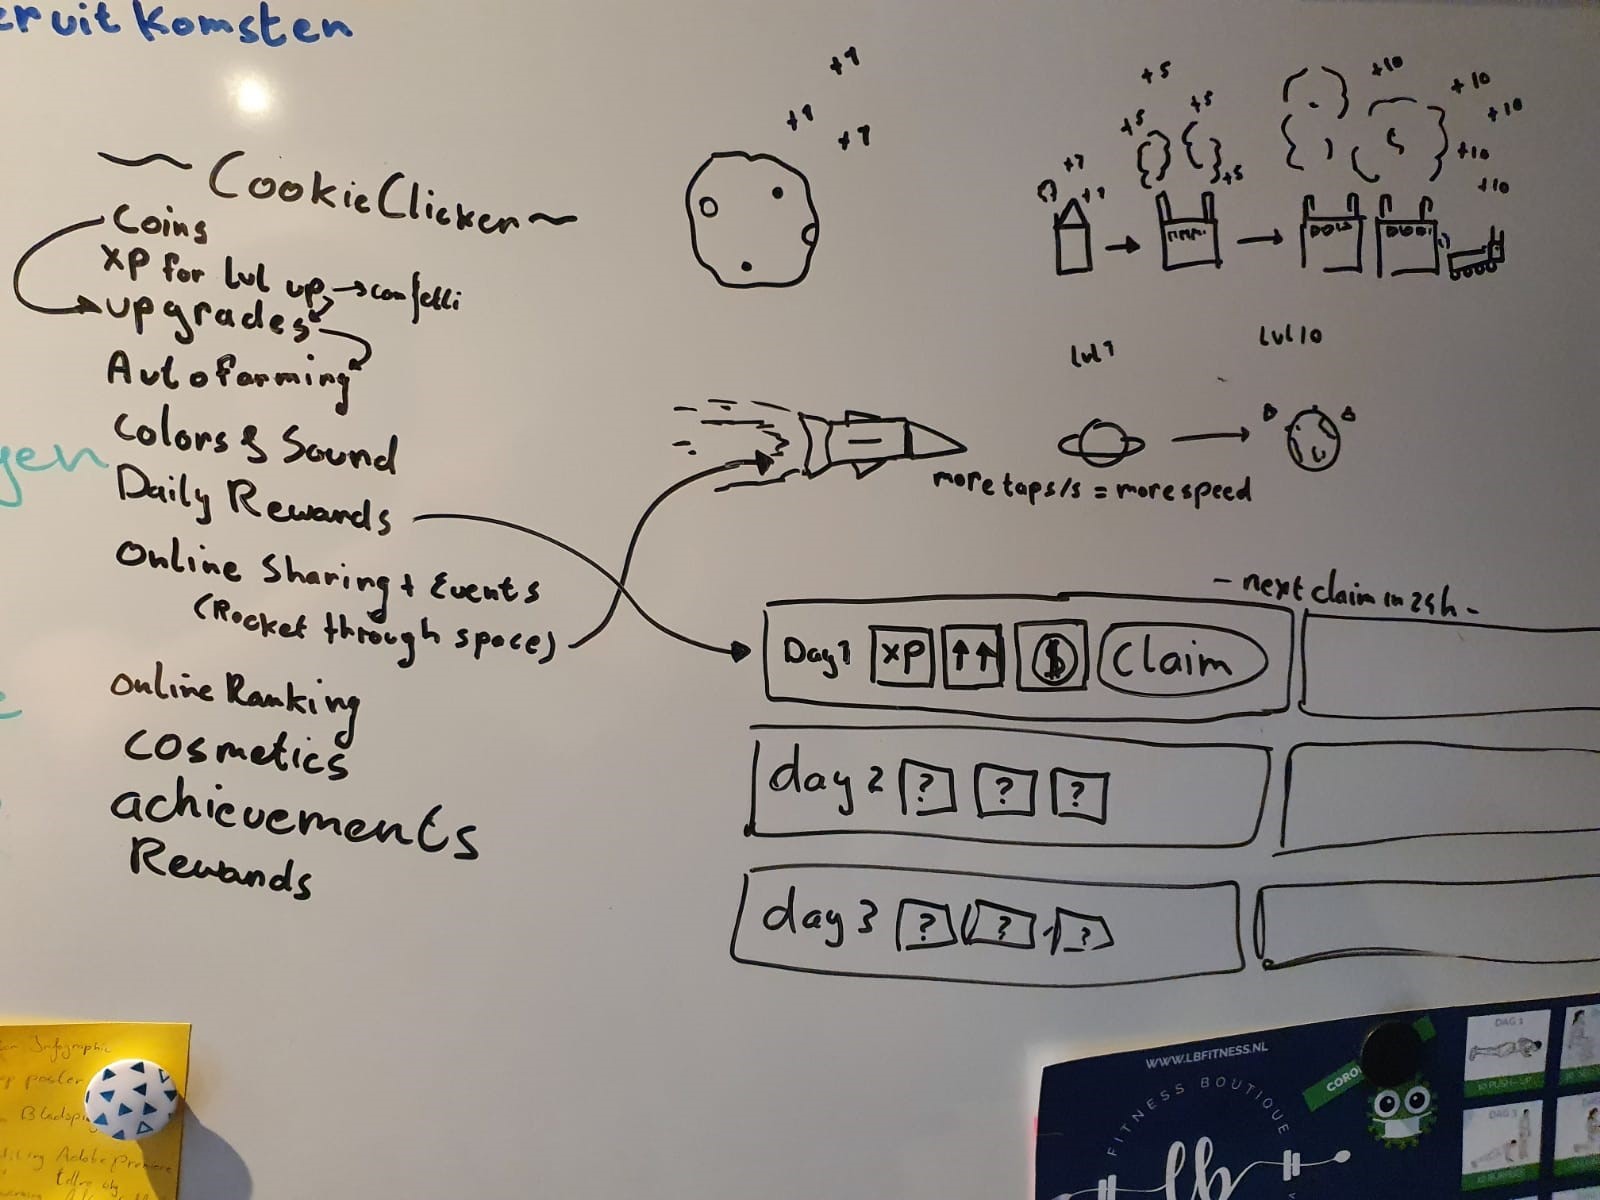 uit Komsten
~ CookieClicker ~
Coins
XP for lvl up → confetti
upgrades
Autofarming
Colors & Sound
Daily Rewards
Online Sharing + Events
(Rocket through space)
Online Ranking
Cosmetics
achievements
Rewards
+1
+1
+1
+1
+1
+5
+5
+5
+5
+10
+10
+10
+10
+10
lvl 1
lvl 10
more taps/s = more speed
- next claim in 24h -
Day 1 XP ↑↑ $ Claim
day 2 ? ? ?
day 3 ? ? ?
Infographic
poster
Adobe Premiere
WWW.LBFITNESS.NL
FITNESS BOUTIQUE
lb
CORO
DAG 1
10 PUSH-UP
DAG 3